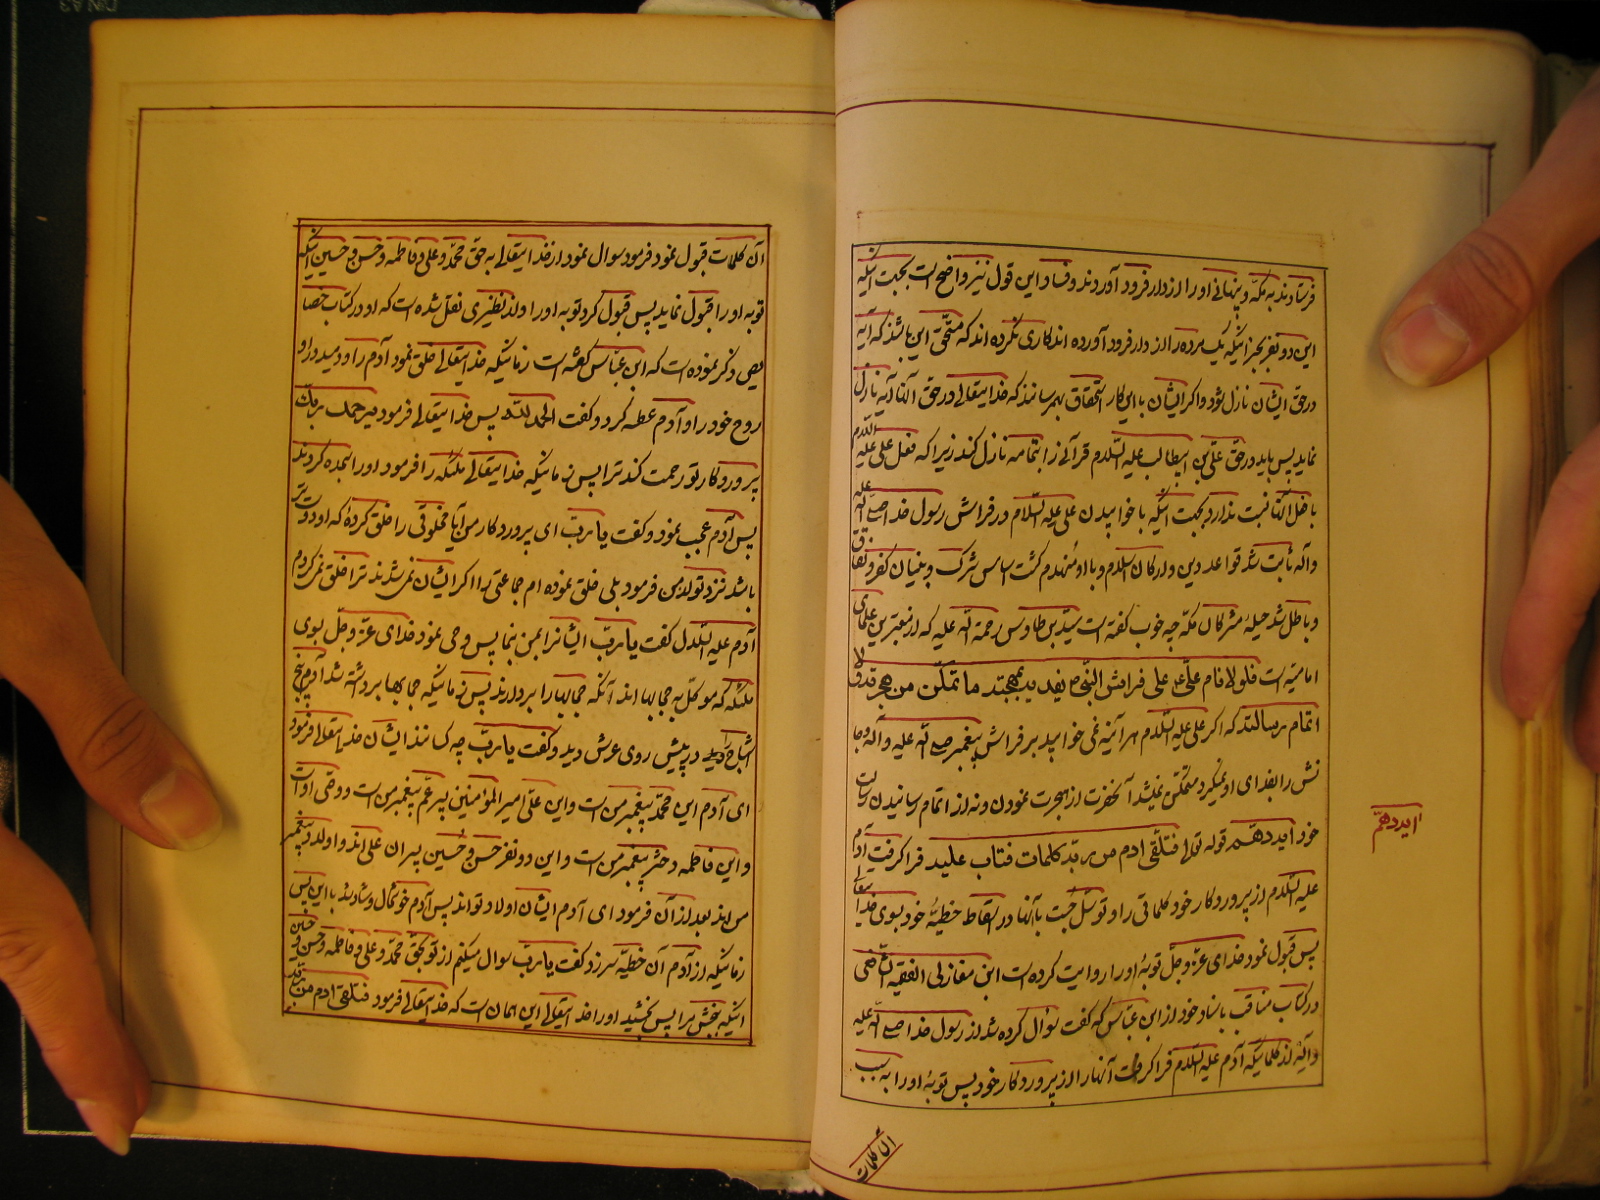 فرستادند به مکه و پنهانی او را از دار فرود آوردند و فساد این قول نیز واضح است بجهت اینکه
این دو نفر بجز اینکه یک مرده را از دار فرود آورده اند کاری نکرده اند که مستحق این باشند که آیه
در حق ایشان نازل شود و اگر ایشان با این کار استحقاق بهم رسانند که خدایتعالی در حق آنها آیه نازل
نماید پس باید در حق علی بن ابیطالب علیه السلام قرآنی را بتمامه نازل کند زیرا که فعل علی علیه السلام
با فعل آنها نسبت ندارد بجهت اینکه با خوابیدن علی علیه السلام در فراش رسول خدا صلی الله علیه
وآله ثابت شد قواعد دین و ارکان اسلام و با او منهدم گشت اساس شرک و بنیان کفر و نفاق
و باطل شد حیله مشرکان مکه چه خوب گفته است سید بن طاوس رحمة الله علیه که از معتبرین علمای
امامیه است فلولا نام علی ع علی فراش النبی ص یفدیه بمهجته ما تمکن من هجر قد ولا
اتمام رسالته که اگر علی علیه السلام هر آینه نمی خوابید بر فراش پیغمبر صلی الله علیه وآله و جا
نش را بفدای او نمیکرد متمکن نمیشد آنحضرت از هجرت نمودن و نه از اتمام رسانیدن رسالت
خود آیه دهم قوله تعالی فتلقی ادم من ربه کلمات فتاب علیه فرا گرفت آدم
علیه السلام از پروردگار خود کلماتی را و توسل جست بآنها در اسقاط خطیئه خود بسوی خدایتعالی
پس قبول نمود خدای عز وجل توبه او را روایت کرده است ابن مغازلی الفقیه الشافعی
در کتاب مناقب باسناد خود از ابن عباس که گفت سوال کرده شد از رسول خدا صلی الله علیه
وآله از کلماتیکه آدم علیه السلام فرا گرفت آنها را از پروردگار خود پس توبه او را به سبب
آیه دهم
آن کلمات
آن کلمات قبول نمود فرمود سوال نمود از خدایتعالی به حق محمد و علی و فاطمه و حسن و حسین اینکه
توبه او را قبول نماید پس قبول کرد توبه او را و از نطنزی نقل شده است که او در کتاب خصا
یص ذکر نموده است که ابن عباس گفته است زمانیکه خدایتعالی خلق نمود آدم را و دمید در او
روح خود را و آدم عطسه کرد و گفت الحمد لله پس خدایتعالی فرمود یرحمک ربک
پروردگار تو رحمت کند ترا پس زمانیکه خدایتعالی ملئکه را فرمود او را سجده کردند
پس آدم عجب نمود و گفت یا رب ای پروردگار من آیا مخلوقی را خلق کردهٔ که او دوست تر
باشد نزد تو از من فرمود بلی خلق نموده ام جماعتی را اگر ایشان نمی شدند ترا خلق نمی کردم
آدم علیه السلام گفت یا رب ایشانرا بمن بنما پس وحی نمود خدای عز و جل بسوی
ملئکه که موکل به حجابها اند آنکه حجابها را بردارند پس زمانیکه حجابها برداشته شد آدم پنج
اشباح را در پیش روی عرش دید و گفت یا رب چه کسانند ایشان خدایتعالی فرمود
ای آدم این محمد پیغمبر من است و این علی امیر المؤمنین پسر عم پیغمبر من است و وصی او است
و این فاطمه دختر پیغمبر من است و این دو نفر حسن و حسین پسران علی اند و اولاد پیغمبر
من اند بعد از آن فرمود ای آدم ایشان اولاد تو اند پس آدم خوشحال و شاد شد با این پس
زمانیکه از آدم آن خطیئه سر زد گفت یا رب سوال میکنم از تو بحق محمد و علی و فاطمه و حسن و حسین
اینکه ببخش مرا پس بخشید او را خدایتعالی این همان است که خدایتعالی فرمود فتلقی ادم من ربه